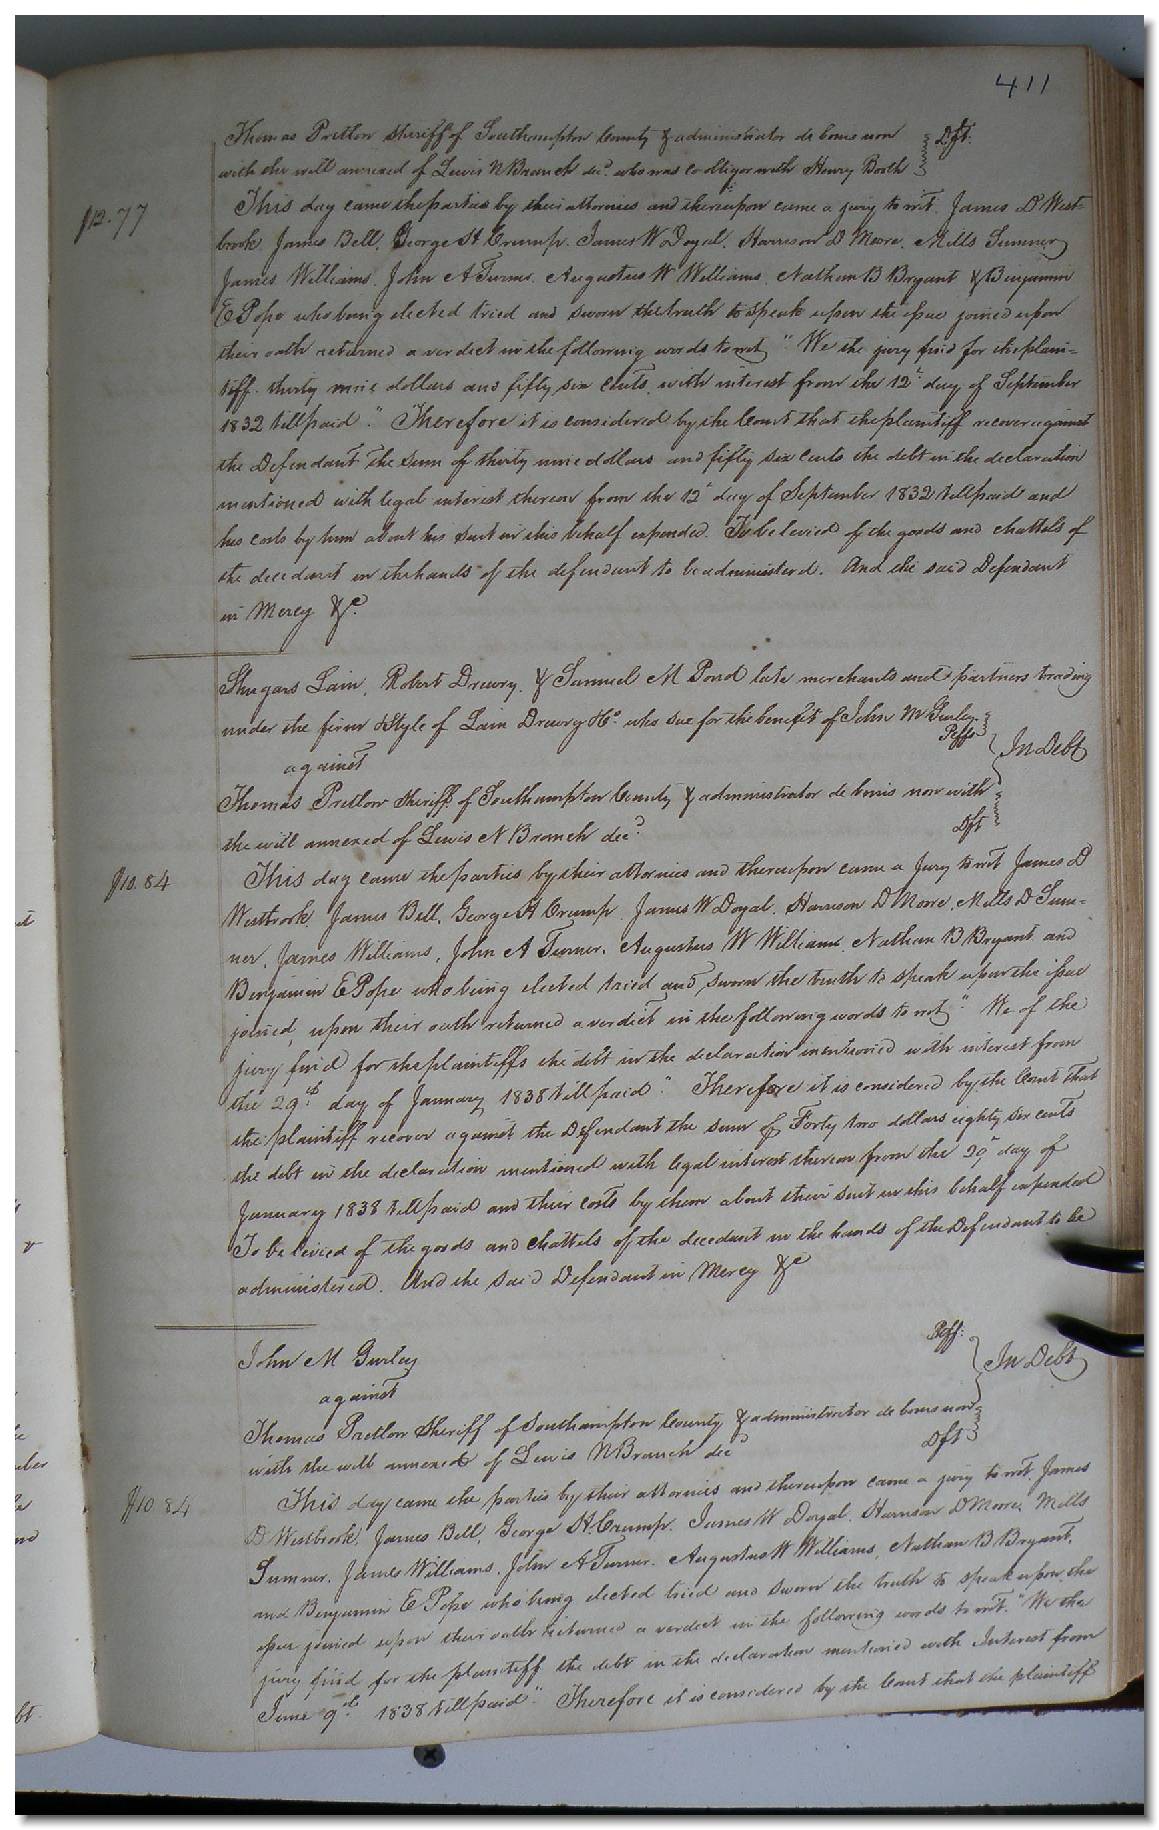 411
Thomas Pretlow Sheriff of Southampton County & administrator de bonis non
with the will annexed of Lewis N Branch decd. who was co obligor with Henry Booth
Dft.
$12.77
This day came the parties by their attornies and thereupon came a jury to wit. James D West-
brook, James Bell, George H Crump. James W Doyal, Harrison D Moore, Mills Sumner
James Williams, John A Turner. Augustus W Williams, Nathan B Bryant & Benjamin
E Pope who being elected tried and sworn the truth to speak upon the issue joined upon
their oath returned a verdict in the following words to wit, "We the jury find for the plain-
tiff thirty nine dollars and fifty six cents, with interest from the 12th day of September
1832 till paid." Therefore it is considered by the Court that the plaintiff recover against
the Defendant the sum of thirty nine dollars and fifty six cents the debt in the declaration
mentioned with legal interest thereon from the 12th day of September 1832 till paid and
his costs by him about his suit in this behalf expended. To be levied of the goods and chattels of
the decedent in the hands of the defendant to be administered. And the said Defendant
in Mercy &c.
Shugars Lain, Robert Drewry, & Samuel M Pond late merchants and partners trading
under the firm & Style of Lain Drewry & Co. who sue for the benefit of John M Gurley
Plffs
In Debt
against
Thomas Pretlow Sheriff of Southampton County & administrator de bonis non with
the will annexed of Lewis N Branch decd.
Dft
$10.84
This day came the parties by their attornies and thereupon came a Jury to wit James D
Westbrook, James Bell, George H Crump, James W Doyal, Harrison D Moore, Mills D Sum-
ner, James Williams, John A Turner, Augustus W Williams, Nathan B Bryant and
Benjamin E Pope who being elected tried and sworn the truth to speak upon the issue
joined, upon their oath returned a verdict in the following words to wit, "We of the
jury find for the plaintiffs the debt in the declaration mentioned with interest from
the 29th day of January 1838 till paid." Therefore it is considered by the Court that
the plaintiff recover against the Defendant the sum of Forty two dollars eighty six cents
the debt in the declaration mentioned with legal interest thereon from the 29th day of
January 1838 till paid and their costs by them about their suit in this behalf expended
To be levied of the goods and chattels of the decedent in the hands of the Defendant to be
administered. And the said Defendant in Mercy &c
John M Gurley
Plff.
In Debt
against
Thomas Pretlow Sheriff of Southampton County & administrator de bonis non
with the will annexed of Lewis N Branch decd
Dft
$10 84
This day came the parties by their attornies and thereupon came a jury to wit, James
D Westbrook, James Bell, George H. Crump, James W Doyal, Harrison D Moore, Mills
Sumner, James Williams, John A Turner, Augustus W Williams, Nathan B Bryant,
and Benjamin E Pope who being elected tried and sworn the truth to speak upon the
issue joined upon their oath returned a verdict in the following words to wit. "We the
jury find for the plaintiff the debt in the declaration mentioned with Interest from
June 9th 1838 till paid." Therefore it is considered by the Court that the plaintiff